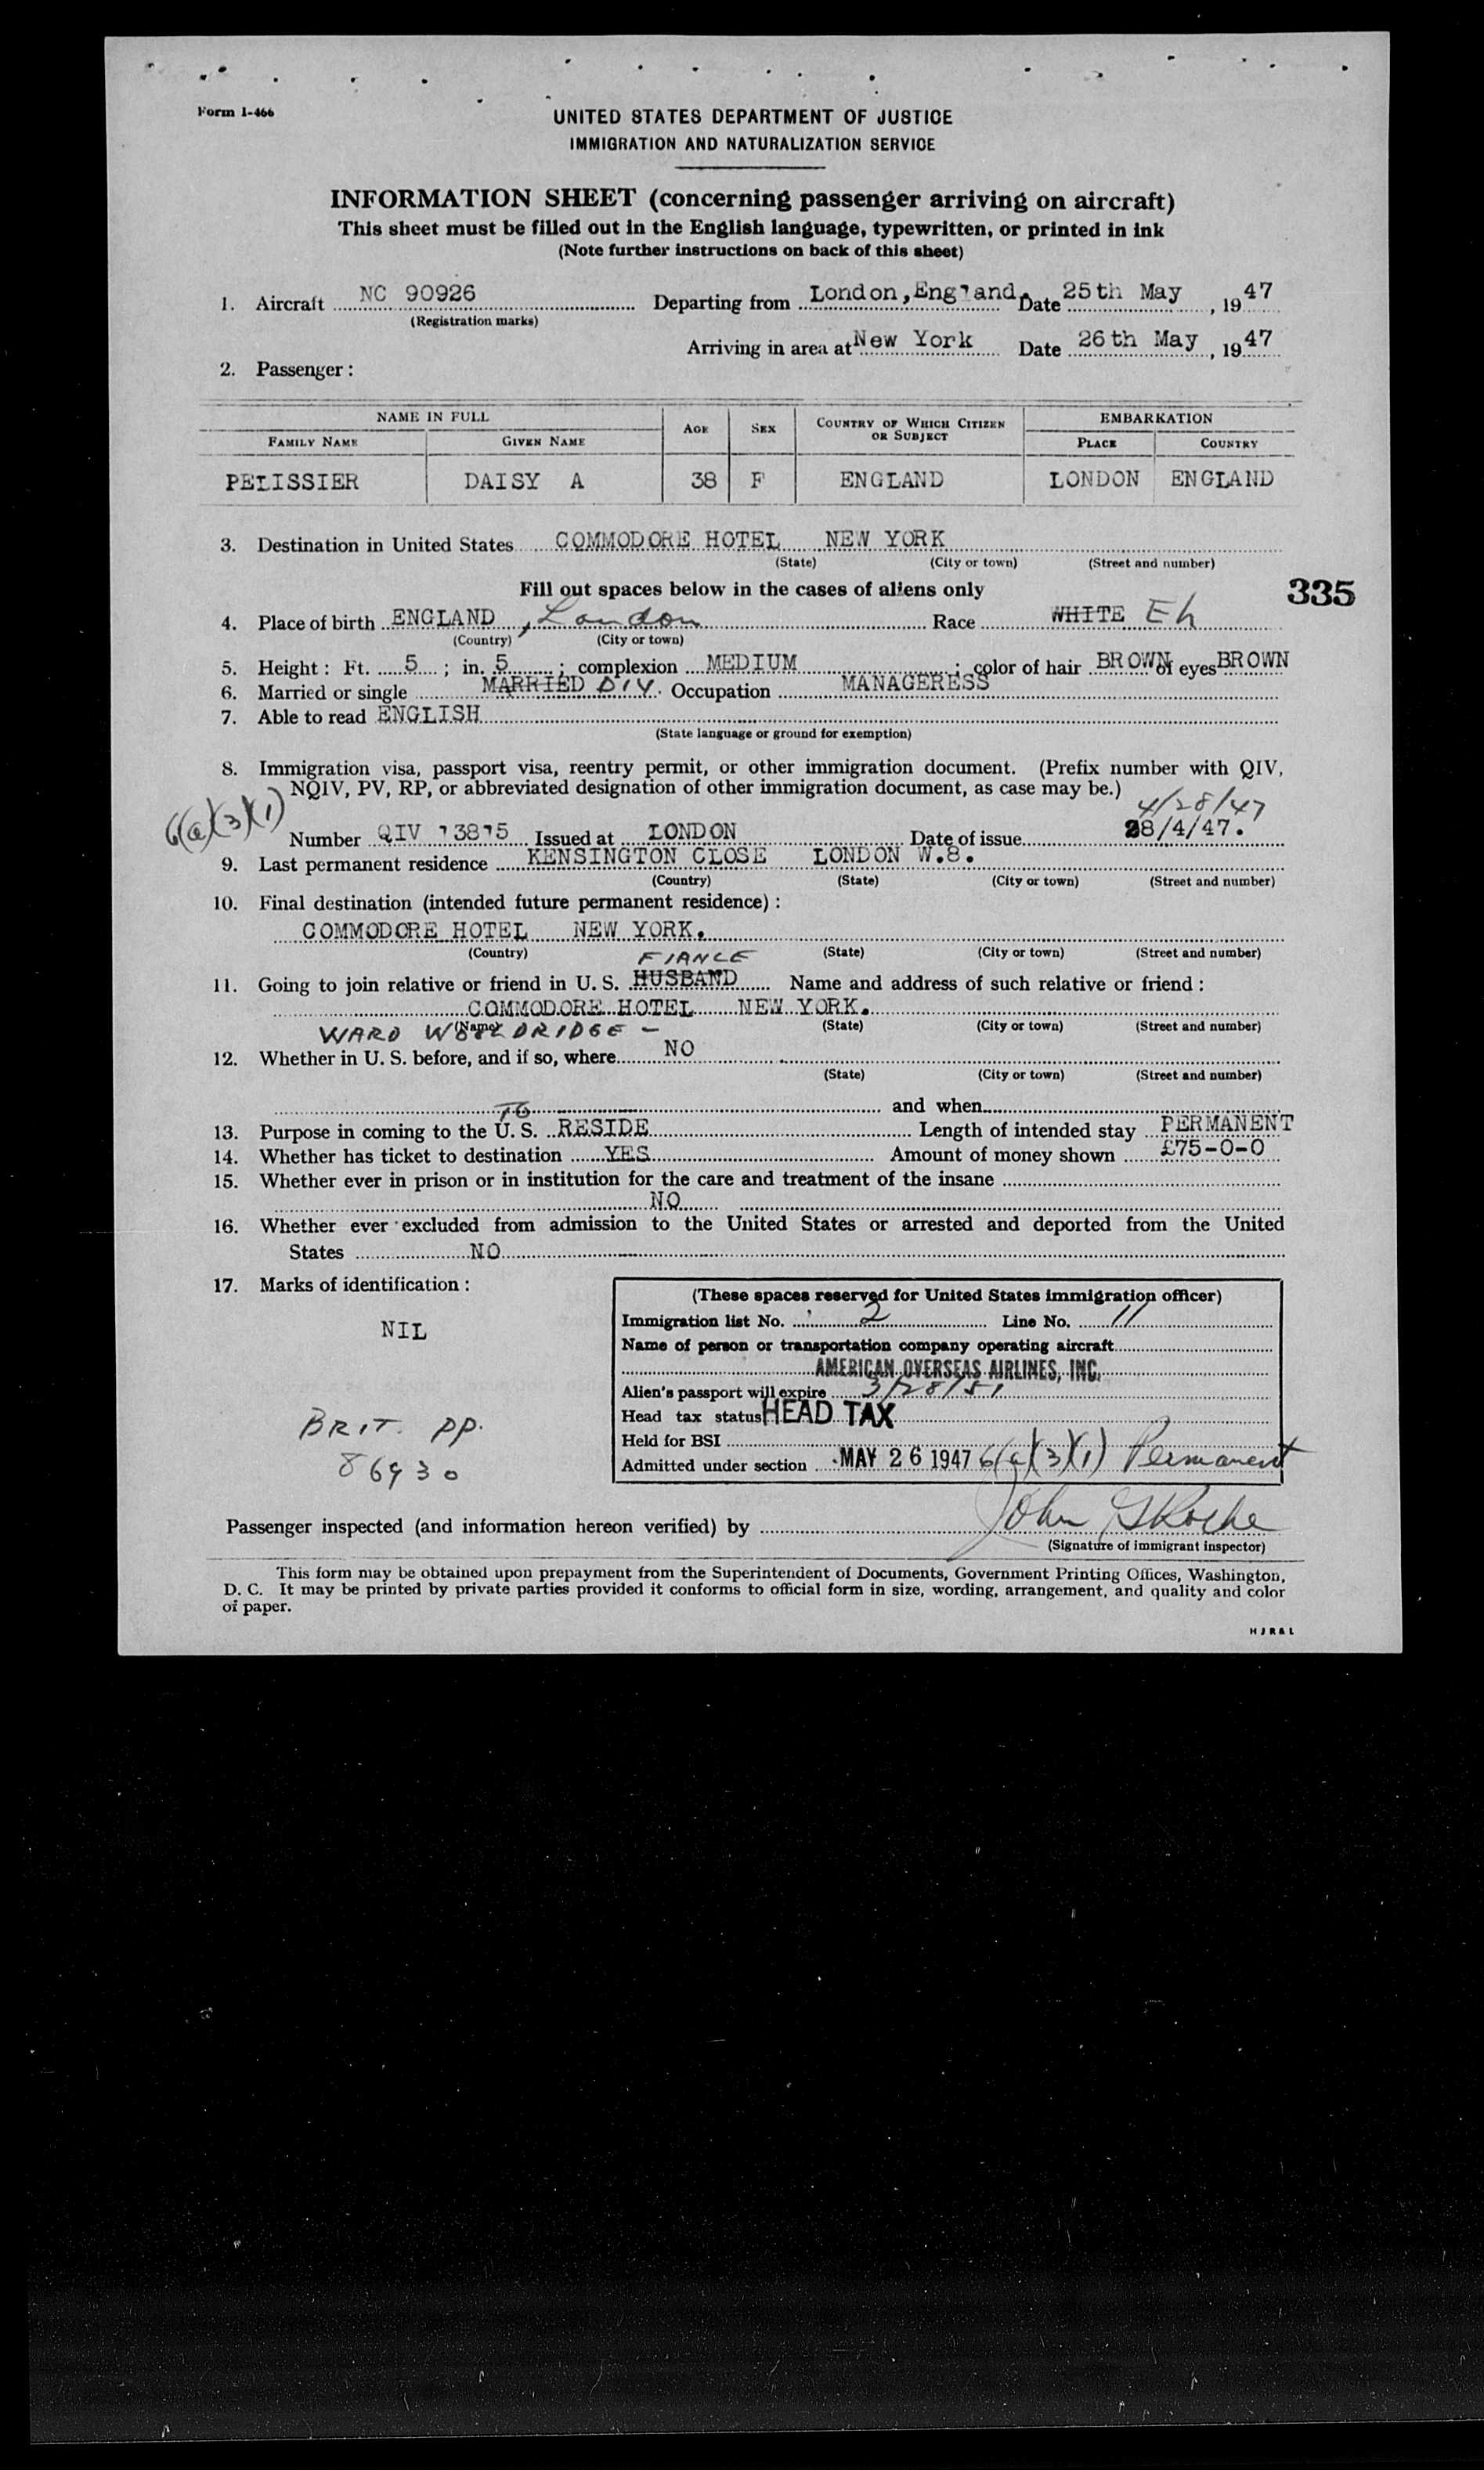 Form I-466
UNITED STATES DEPARTMENT OF JUSTICE
IMMIGRATION AND NATURALIZATION SERVICE
INFORMATION SHEET (concerning passenger arriving on aircraft)
This sheet must be filled out in the English language, typewritten, or printed in ink
(Note further instructions on back of this sheet)
1. Aircraft NC 90926 Departing from London, England. Date 25th May, 1947
(Registration marks)
Arriving in area at New York Date 26th May, 1947
2. Passenger:
NAME IN FULL AGE SEX COUNTRY OF WHICH CITIZEN OR SUBJECT EMBARKATION
FAMILY NAME GIVEN NAME PLACE COUNTRY
PELISSIER DAISY A 38 F ENGLAND LONDON ENGLAND
3. Destination in United States COMMODORE HOTEL NEW YORK
(State) (City or town) (Street and number)
Fill out spaces below in the cases of aliens only 335
4. Place of birth ENGLAND, London Race WHITE Eh
(Country) (City or town)
5. Height: Ft. 5; in. 5; complexion MEDIUM; color of hair BROWN of eyes BROWN
6. Married or single MARRIED DIV. Occupation MANAGERESS
7. Able to read ENGLISH
(State language or ground for exemption)
8. Immigration visa, passport visa, reentry permit, or other immigration document. (Prefix number with QIV,
NQIV, PV, RP, or abbreviated designation of other immigration document, as case may be.)
6(a)(3)(1) 4/28/47
Number QIV 13815 Issued at LONDON Date of issue 28/4/47.
9. Last permanent residence KENSINGTON CLOSE LONDON W.8.
(Country) (State) (City or town) (Street and number)
10. Final destination (intended future permanent residence):
COMMODORE HOTEL NEW YORK.
(Country) (State) (City or town) (Street and number)
FIANCE
11. Going to join relative or friend in U. S. HUSBAND Name and address of such relative or friend:
COMMODORE HOTEL NEW YORK.
(Name) (State) (City or town) (Street and number)
WARD WOOLDRIDGE -
12. Whether in U. S. before, and if so, where NO
(State) (City or town) (Street and number)
and when
TO
13. Purpose in coming to the U. S. RESIDE Length of intended stay PERMANENT
14. Whether has ticket to destination YES Amount of money shown £75-0-0
15. Whether ever in prison or in institution for the care and treatment of the insane
NO
16. Whether ever excluded from admission to the United States or arrested and deported from the United
States NO
17. Marks of identification:
NIL
BRIT. PP.
86930
(These spaces reserved for United States immigration officer)
Immigration list No. 2 Line No. 11
Name of person or transportation company operating aircraft
AMERICAN OVERSEAS AIRLINES, INC.
Alien's passport will expire 3/28/51
Head tax status HEAD TAX
Held for BSI
Admitted under section MAY 26 1947 6(a)(3)(1) Permanent
Passenger inspected (and information hereon verified) by John G Roche
(Signature of immigrant inspector)
This form may be obtained upon prepayment from the Superintendent of Documents, Government Printing Offices, Washington,
D. C. It may be printed by private parties provided it conforms to official form in size, wording, arrangement, and quality and color
of paper.
H J R & L